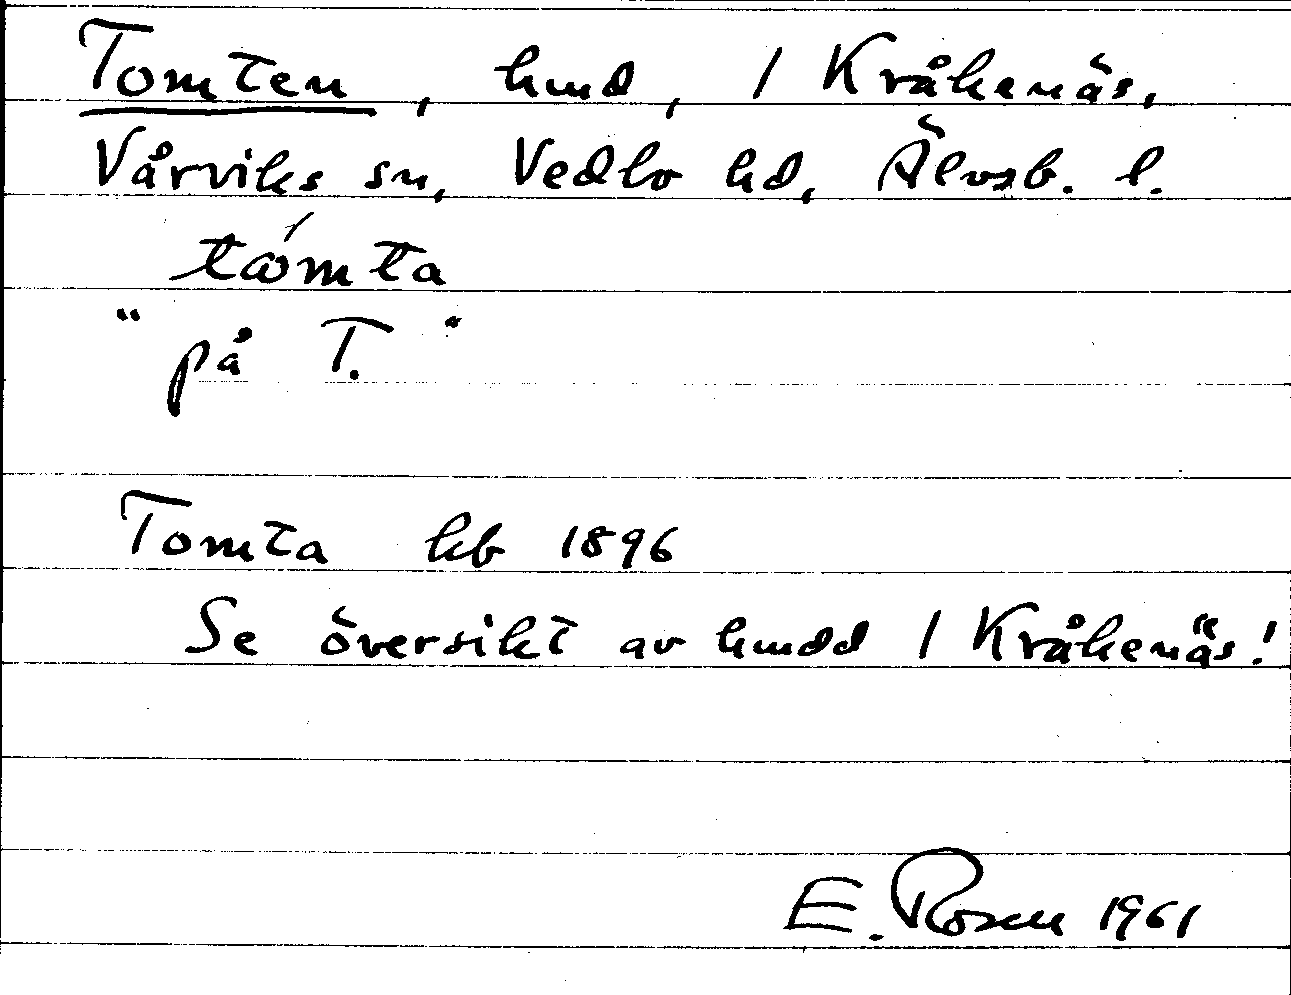 Tomten, hmd, 1 Kråkenäs,
Vårviks sn, Vedbo hd, Älvsb. l.
tɷ́mta
"på T."
Tomta hb 1896
Se översikt av hmdd 1 Kråkenäs!
E. Rosen 1961